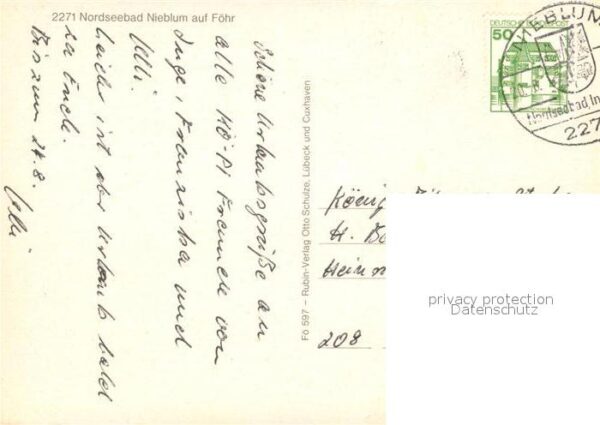 2271 Nordseebad Nieblum auf Föhr
Schöne Urlaubsgrüße an
alle KÖ PI Freunde von
Inge, Franziska und
Ulli.
Leider ist der Urlaub bald
zu Ende.
Bis zum 24.8.
Ulli
Fö 597 – Rubin-Verlag Otto Schulze, Lübeck und Cuxhaven
DEUTSCHE BUNDESPOST
50
NIEBLUM
Nordseebad, In
227
König
H. Bo
Heinr
208
privacy protection
Datenschutz